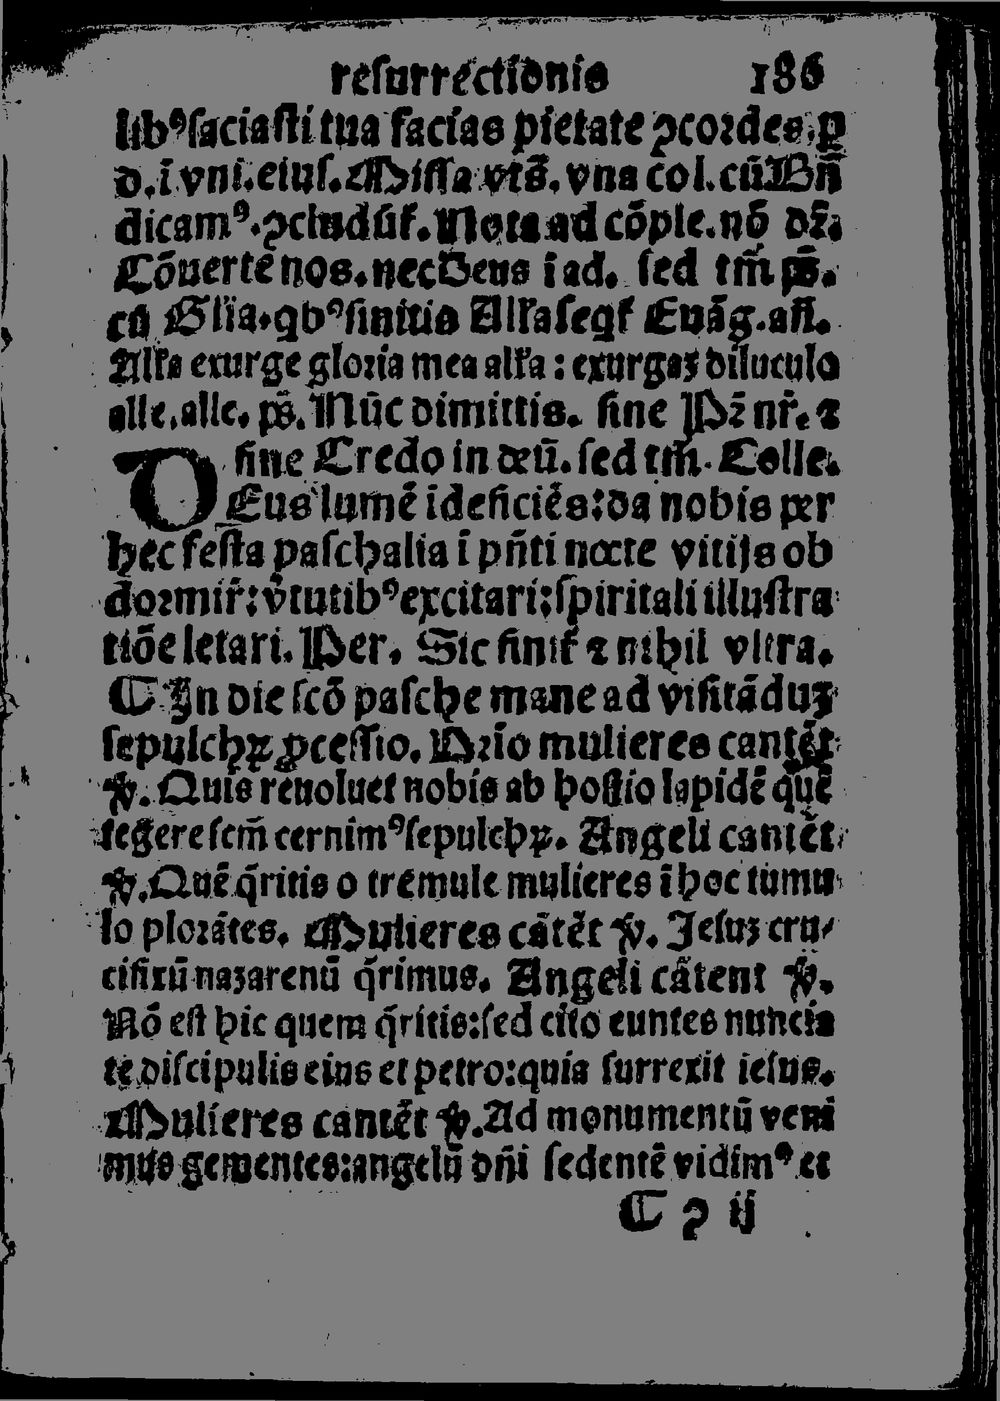 resurrectionis 186
libꝰ saciasti tua facias pietate ꝯcordes. ꝑ
d. ī vni. eius. Missa vts̄. vna col. cū Bn̄
dicamꝰ. ꝯcludūt. Nota ad cōple. nō dr̄.
Cōuerte nos. nec Deus ī ad. sed tm̄ ps̄.
cū Glīa. qbꝰ finitis Alła seqt Euāg. an̄.
Alła exurge gloria mea alła: exurgaꝫ diluculo
alle. alle. ps̄. Nūc dimittis. sine Pr̄ nr̄. ⁊
sine Credo in deū. sed tm̄. Colle.
DEus lumē īdeficiēs: da nobis per
hec festa paschalia ī pn̄ti nocte vitijs ob
dormir̄: v̄tutibꝰ excitari: spiritali illustra
tiōe letari. Per. Sic finit ⁊ nihil vltra.
¶ In die scō pasche mane ad visitāduꝫ
sepulchꝝ ꝓcessio. Prīo mulieres cantēt
℣. Quis reuoluet nobis ab hostio lapidē quē
tegere scm̄ cernimꝰ sepulchꝝ. Angeli cantēt
℣. Quē q̄ritis o tremule mulieres ī hoc tumu
lo plorātes. Mulieres cātēt ℣. Jesuꝫ cru/
cifixū nazarenū q̄rimus. Angeli cātent ℣.
Nō est hic quem q̄ritis: sed cito euntes nuncia
te discipulis eius et petro: quia surrexit iesus.
Mulieres cantēt ℣. Ad monumentū veni
mus gementes: angelū dn̄i sedentē vidimꝰ et
C ꝯ ij